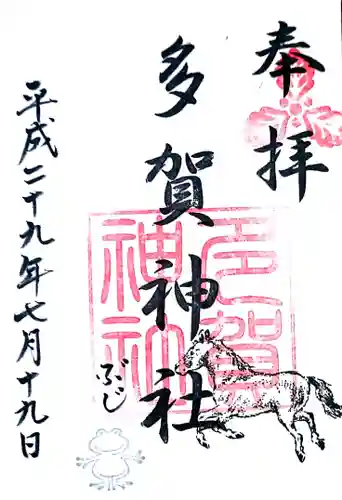 奉拝
多賀神社
多賀
神社
ぶじ
平成二十九年七月十九日